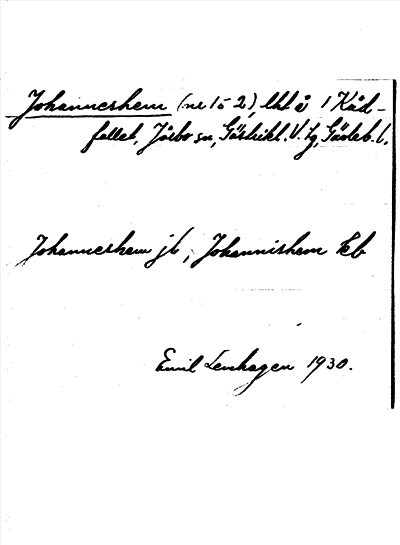 Johanneshem (nr 1 o 2), lht å 1 Råd-
fallet, Järbo sn, Gästrikl. V. tg, Gävleb. l.
Johanneshem jb, Johannishem kb
Emil Lenhagen 1930.